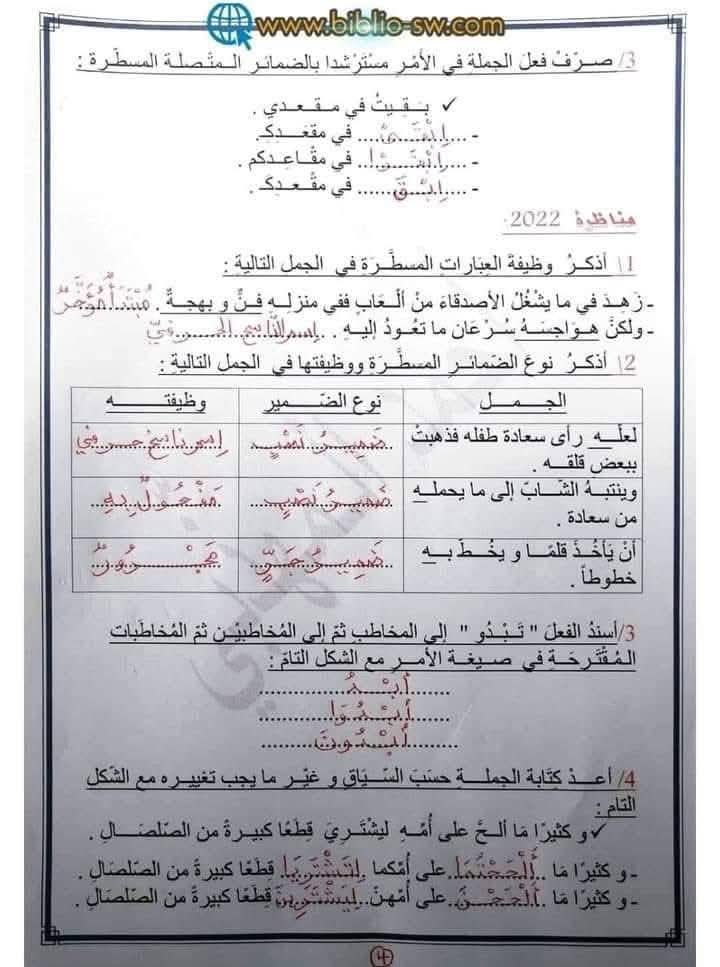 www.biblio-sw.com
3/ صرّفْ فعلَ الجملةِ في الأمْرِ مسْترْشدا بالضمائر المتّصلة المسطّرة :
✓ بقيتُ في مقعدي .
- ....اِبْقَيْ.... في مقعدِكِ.
- ....اِبْقَوْا.... في مقاعِدكم .
- ....اِبْقَ...... في مقْعدِكَ .
مناظرة 2022.
1\ أذكرُ وظيفةَ العِبارات المسطَّرَة في الجمل التالية :
- زَهِدَ في ما يشْغُلُ الأصدقاءَ منْ ألْعابٍ ففي منزلِه فنٌّ و بهجةٌ . مُبْتَدَأٌ مُؤَخَّرٌ
- ولكنَّ هوَاجسَهُ سُرْعَان ما تعُودُ إليهِ . ..اسم النّاسخ الحرفيّ
2\ أذكرُ نوعَ الضّمائرِ المسطّرة ووظيفتها في الجمل التالية :
الجمل نوع الضّمير وظيفته
لعلّه رأى سعادة طفله فذهبتْ ضمير نصْبٍ اسم ناسخ حرفي
ببعض قلقه .
وينتبهُ الشّابّ إلى ما يحمله ضمير نصْبٍ مفعول به
من سعادة .
أنْ يَأخُذَ قلمًا و يخُطّ به ضمير جَرٍّ مجْرورٌ
خطوطاً .
3/أسندُ الفعلَ " تَبْدُو " إلى المخاطبِ ثمّ إلى المُخاطبِيْن ثمّ المُخاطَبات
المُقْتَرحَةِ في صيغة الأمرِ مع الشكل التامّ :
.......اُبْدُ.......
.......اُبْدُوا.......
.......اُبْدُونَ.......
4/ أعدْ كتابة الجملةِ حسَبَ السّيَاقِ و غيّر ما يجب تغييره مع الشّكل
التّام :
✓ و كثيرًا مَا ألحَّ على أمّهِ ليشْتَرِيَ قِطَعًا كبيرةً من الصّلصَالِ .
- و كثيرًا مَا ..أَلْحَحْتُمَا.. على أمّكما لِتَشْتَرِيَا قِطَعًا كبيرةً من الصّلصَالِ .
- و كثيرًا مَا ..أَلْحَحْنَ.. على أمّهنّ .لِيَشْتَرِينَ قِطَعًا كبيرةً من الصّلصَالِ .
4